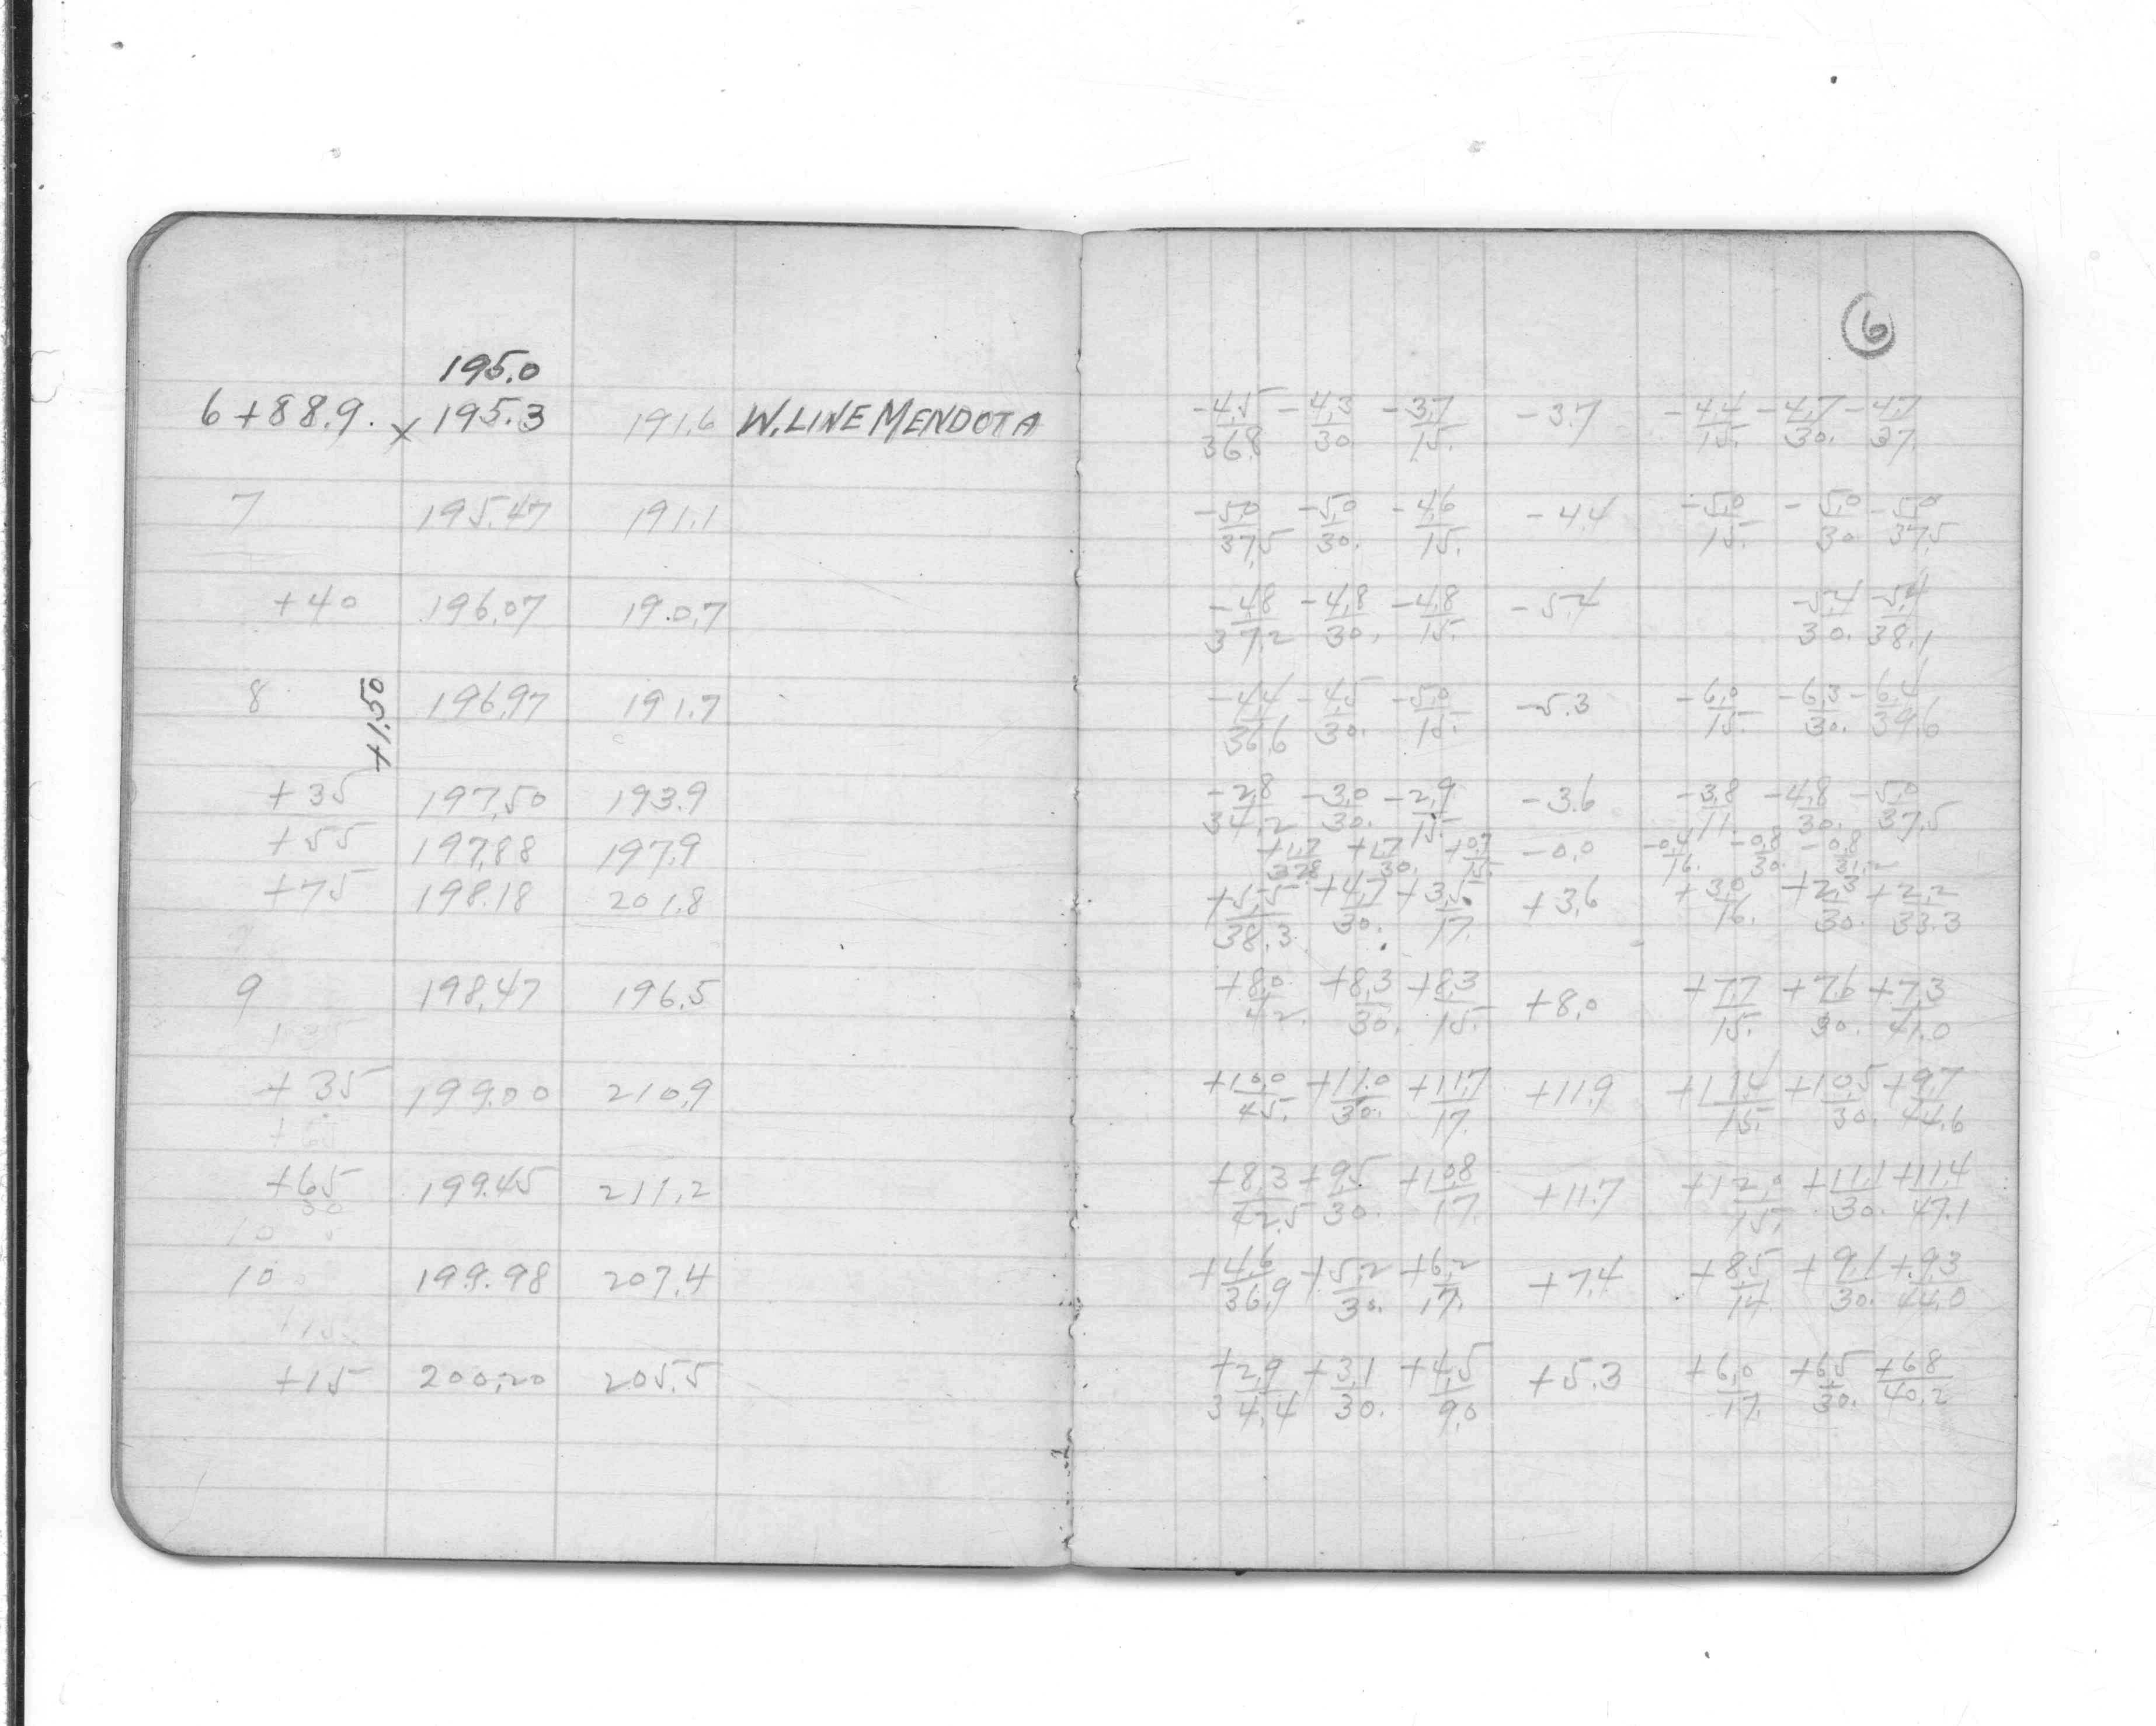 6
195.0
6+88.9. x 195.3 191.6 W. LINE MENDOTA -4.5/36.8 -4.3/30 -3.7/15. -3.7 -4.4/15. -4.7/30. -4.7/37.
7 195.47 191.1 -5.0/37.5 -5.0/30. -4.6/15. -4.4 -5.0/15. -5.0/30 -5.0/37.5
+40 196.07 190.7 -4.8/37.2 -4.8/30. -4.8/15. -5.4 -5.4/30. -5.4/38.1
8 196.97 191.7 -4.4/36.6 -4.5/30. -5.0/15. -5.3 -6.0/15. -6.3/30. -6.4/39.6
+1.50
+35 197.50 193.9 -2.8/34.2 -3.0/30. -2.9/15. -3.6 -3.8/11. -4.8/30. -5.0/37.5
+55 197.88 197.9 +1.7/ +1.7/30. +0.7/15. -0.0 -0.4/16. -0.8/30. -0.8/31.2
+75 198.18 201.8 +5.5/38.3 +4.7/30. +3.5/17. +3.6 +3.0/16. +2.3/30. +2.2/33.3
9 198.47 196.5 +8.0/42. +8.3/30. +8.3/15. +8.0 +7.7/15. +7.6/30. +7.3/41.0
+35 199.00 210.9 +10.0/45. +11.0/30. +11.7/17. +11.9 +11.4/15. +10.5/30. +9.7/44.6
+65 199.45 211.2 +8.3/42.5 +9.5/30. +10.8/17. +11.7 +12.0/15. +11.1/30. +11.4/47.1
10 199.98 207.4 +4.6/36.9 +5.2/30. +6.2/17. +7.4 +8.5/14 +9.1/30. +9.3/44.0
+15 200.20 205.5 +2.9/34.4 +3.1/30. +4.5/9.0 +5.3 +6.0/17. +6.5/30. +6.8/40.2